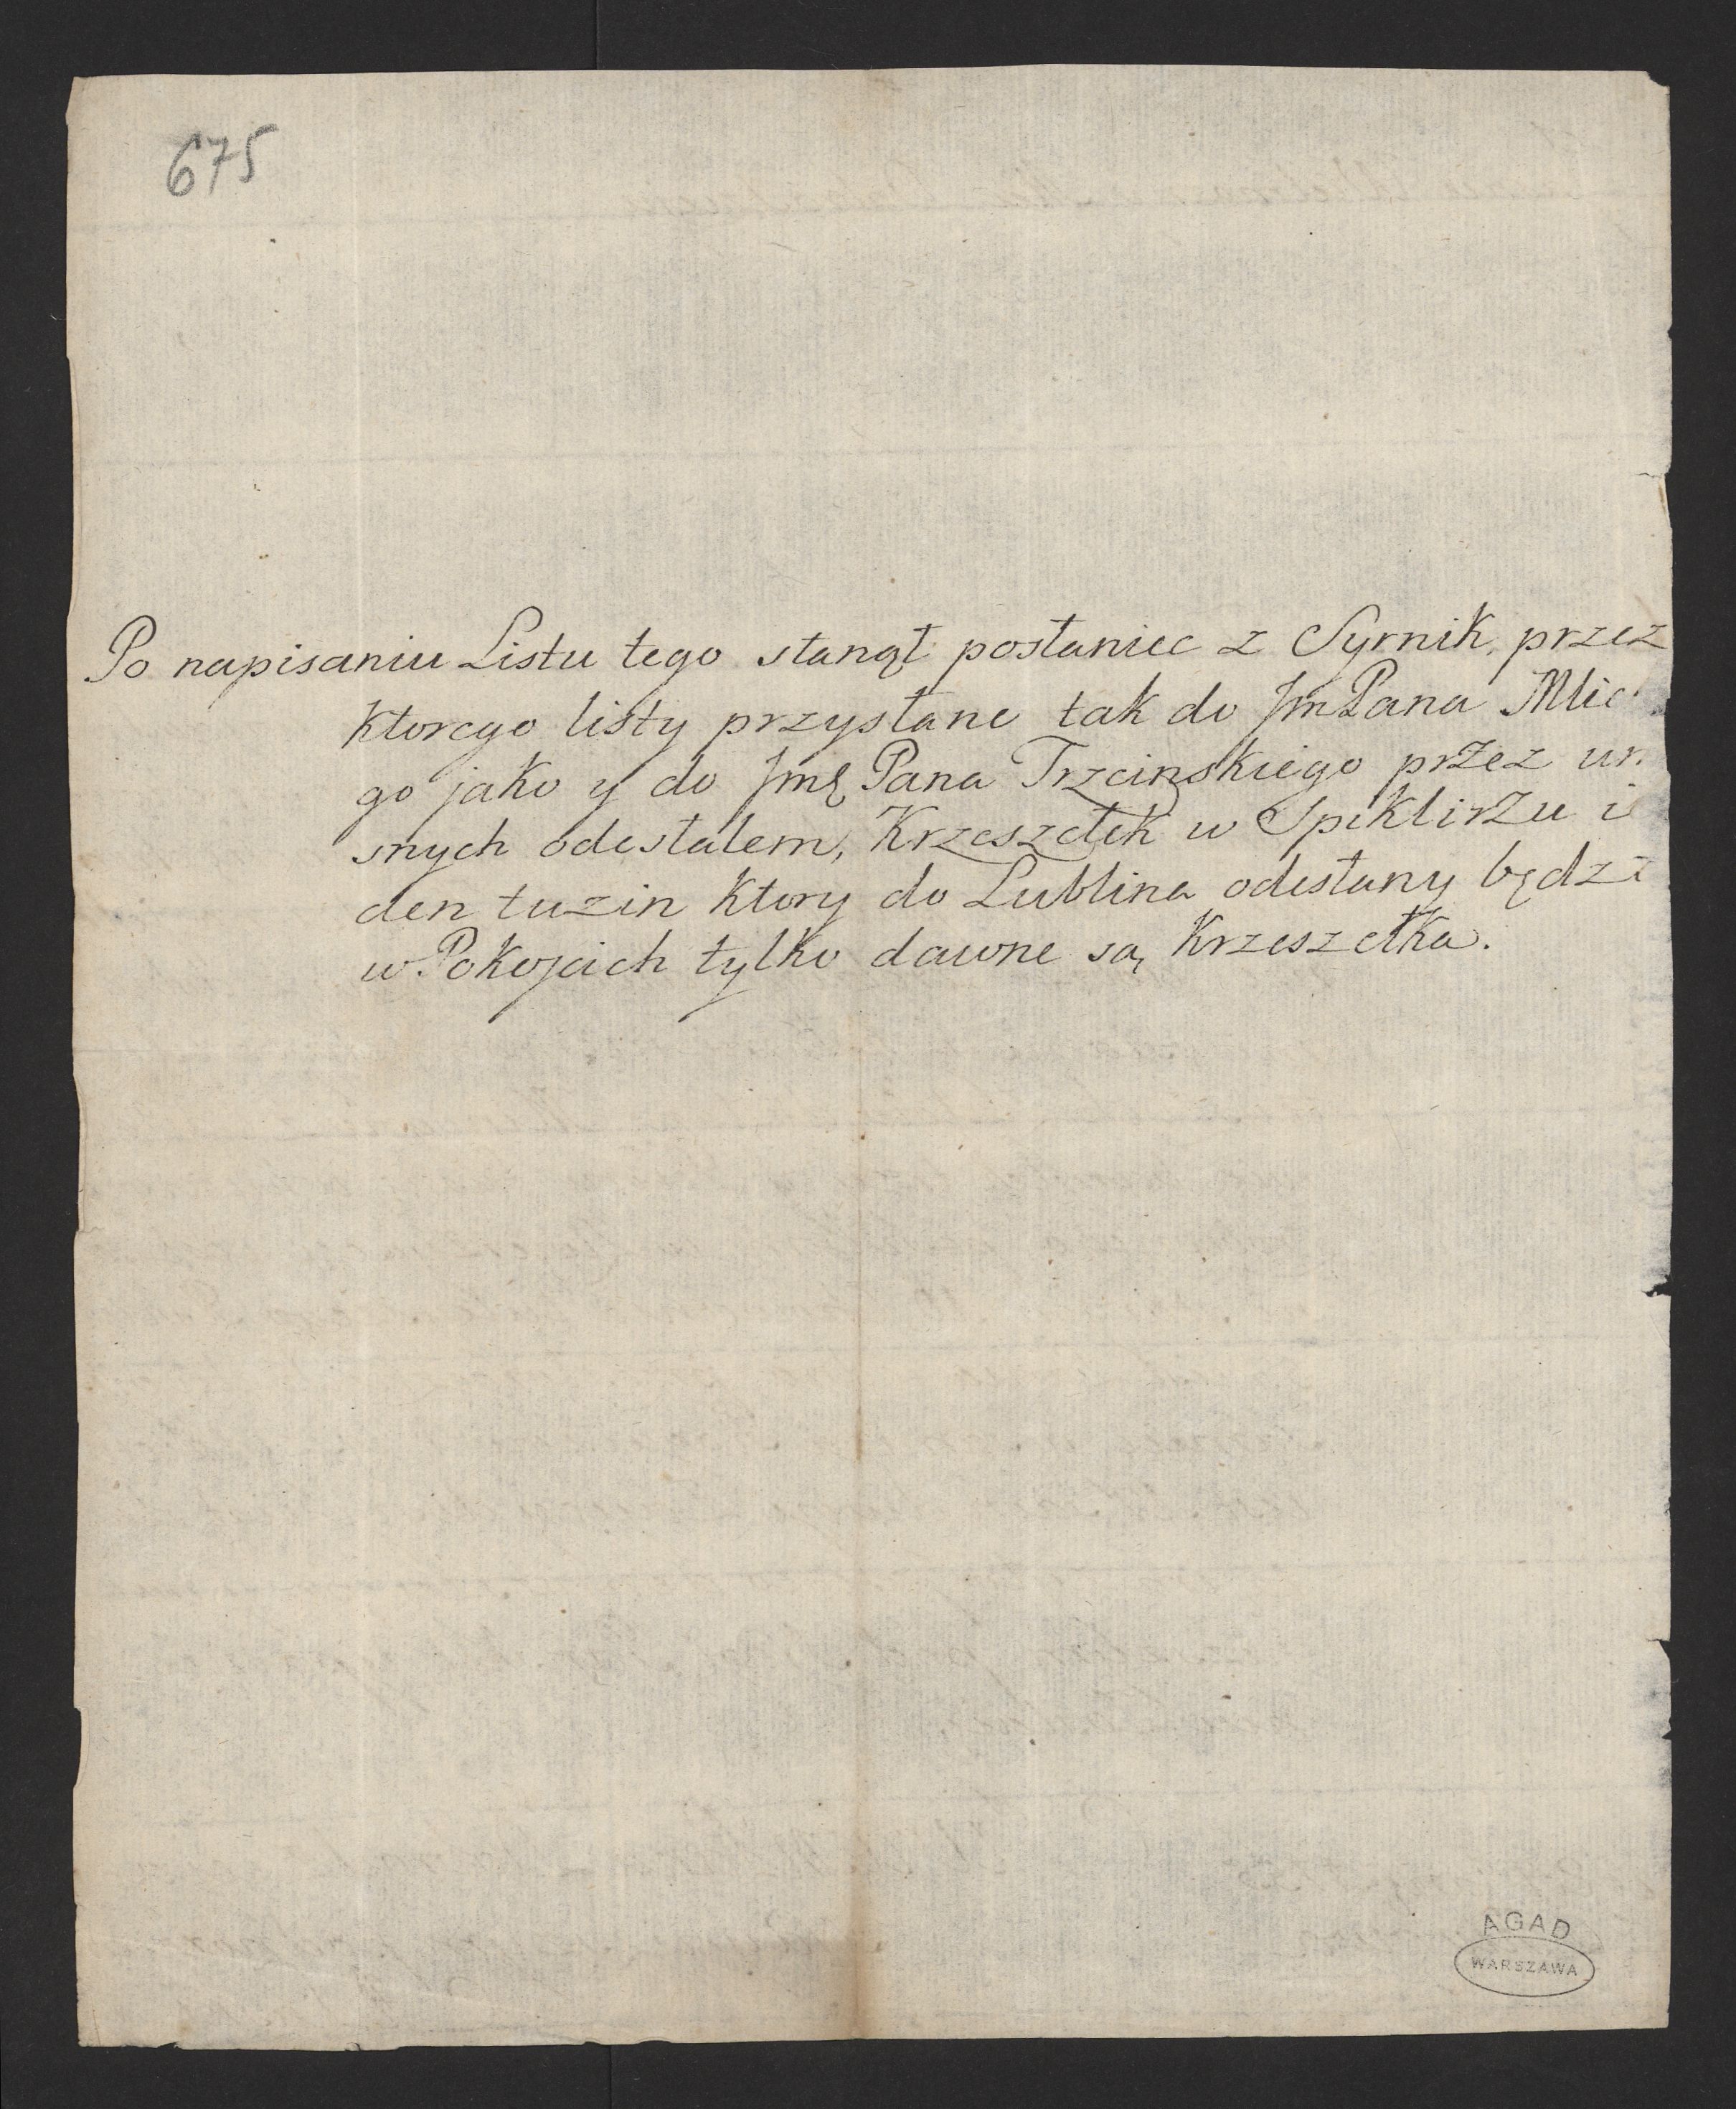 675
Po napisaniu Listu tego stanął posłaniec z Syrnik, przez
ktorego listy przysłane tak do Jm Pana
go jako y do Jmę Pana Trzcinskiego przez
snych odesłalem, Krzeszełek w Spiklirzu
den tuzin ktory do Lublina odesłany będzi
w Pokojach tylko dawne są Krzeszełka.
AGAD
WARSZAWA